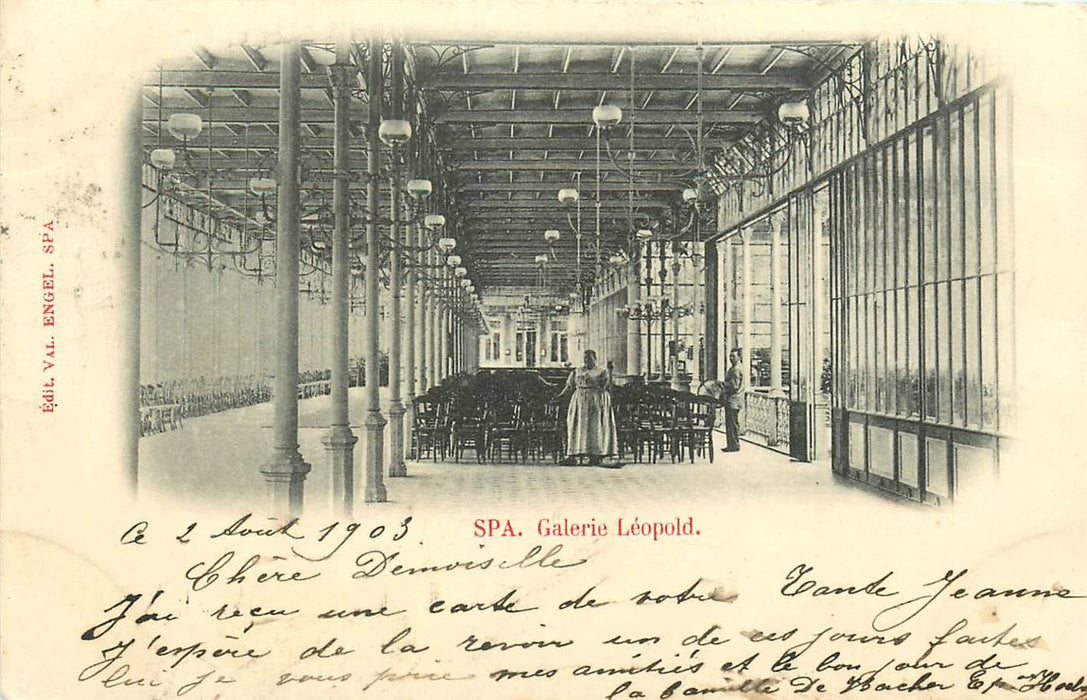 Édit. VAL. ENGEL. SPA
SPA. Galerie Léopold.
Ce 2 Août 1903.
Chère Demoiselle
J'ai reçu une carte de votre Tante Jeanne
J'espère de la revoir un de ces jours faites
lui je vous prie mes amitiés et le bon jour de
la famille De Hacher